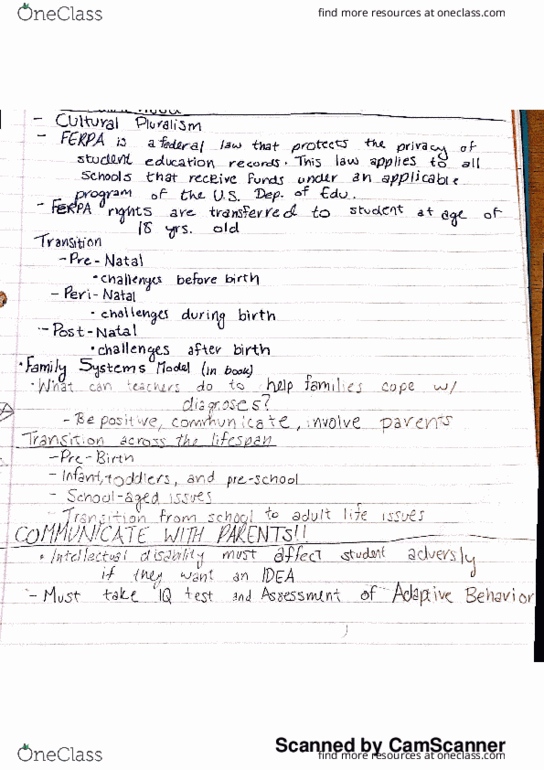 OneClass
find more resources at oneclass.com
- Cultural Pluralism
- FERPA is a federal law that protects the privacy of
student education records. This law applies to all
schools that receive funds under an applicable
program of the U.S. Dep. of Edu.
- FERPA rights are transferred to student at age of
18 yrs. old
Transition
- Pre-Natal
• challenges before birth
- Peri-Natal
• challenges during birth
- Post-Natal
• challenges after birth
• Family Systems Model (in book)
• What can teachers do to help families cope w/
diagnoses?
- Be positive, communicate, involve parents
Transition across the lifespan
- Pre-Birth
- Infant, toddlers, and pre-school
- School-aged issues
- Transition from school to adult life issues
COMMUNICATE WITH PARENTS!!
• Intellectual disability must affect student adversly
if they want an IDEA
- Must take IQ test and Assessment of Adaptive Behavior
Scanned by CamScanner
OneClass
find more resources at oneclass.com